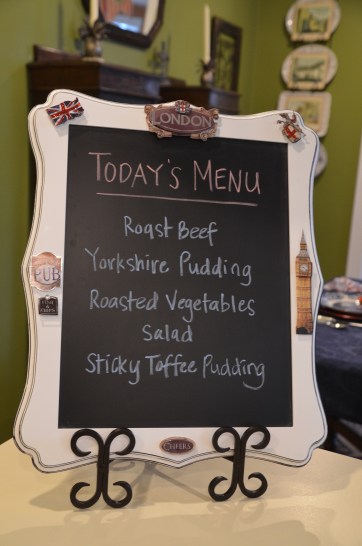 LONDON
TODAY'S MENU
Roast Beef
Yorkshire Pudding
PUB
Roasted Vegetables
Salad
Sticky Toffee Pudding